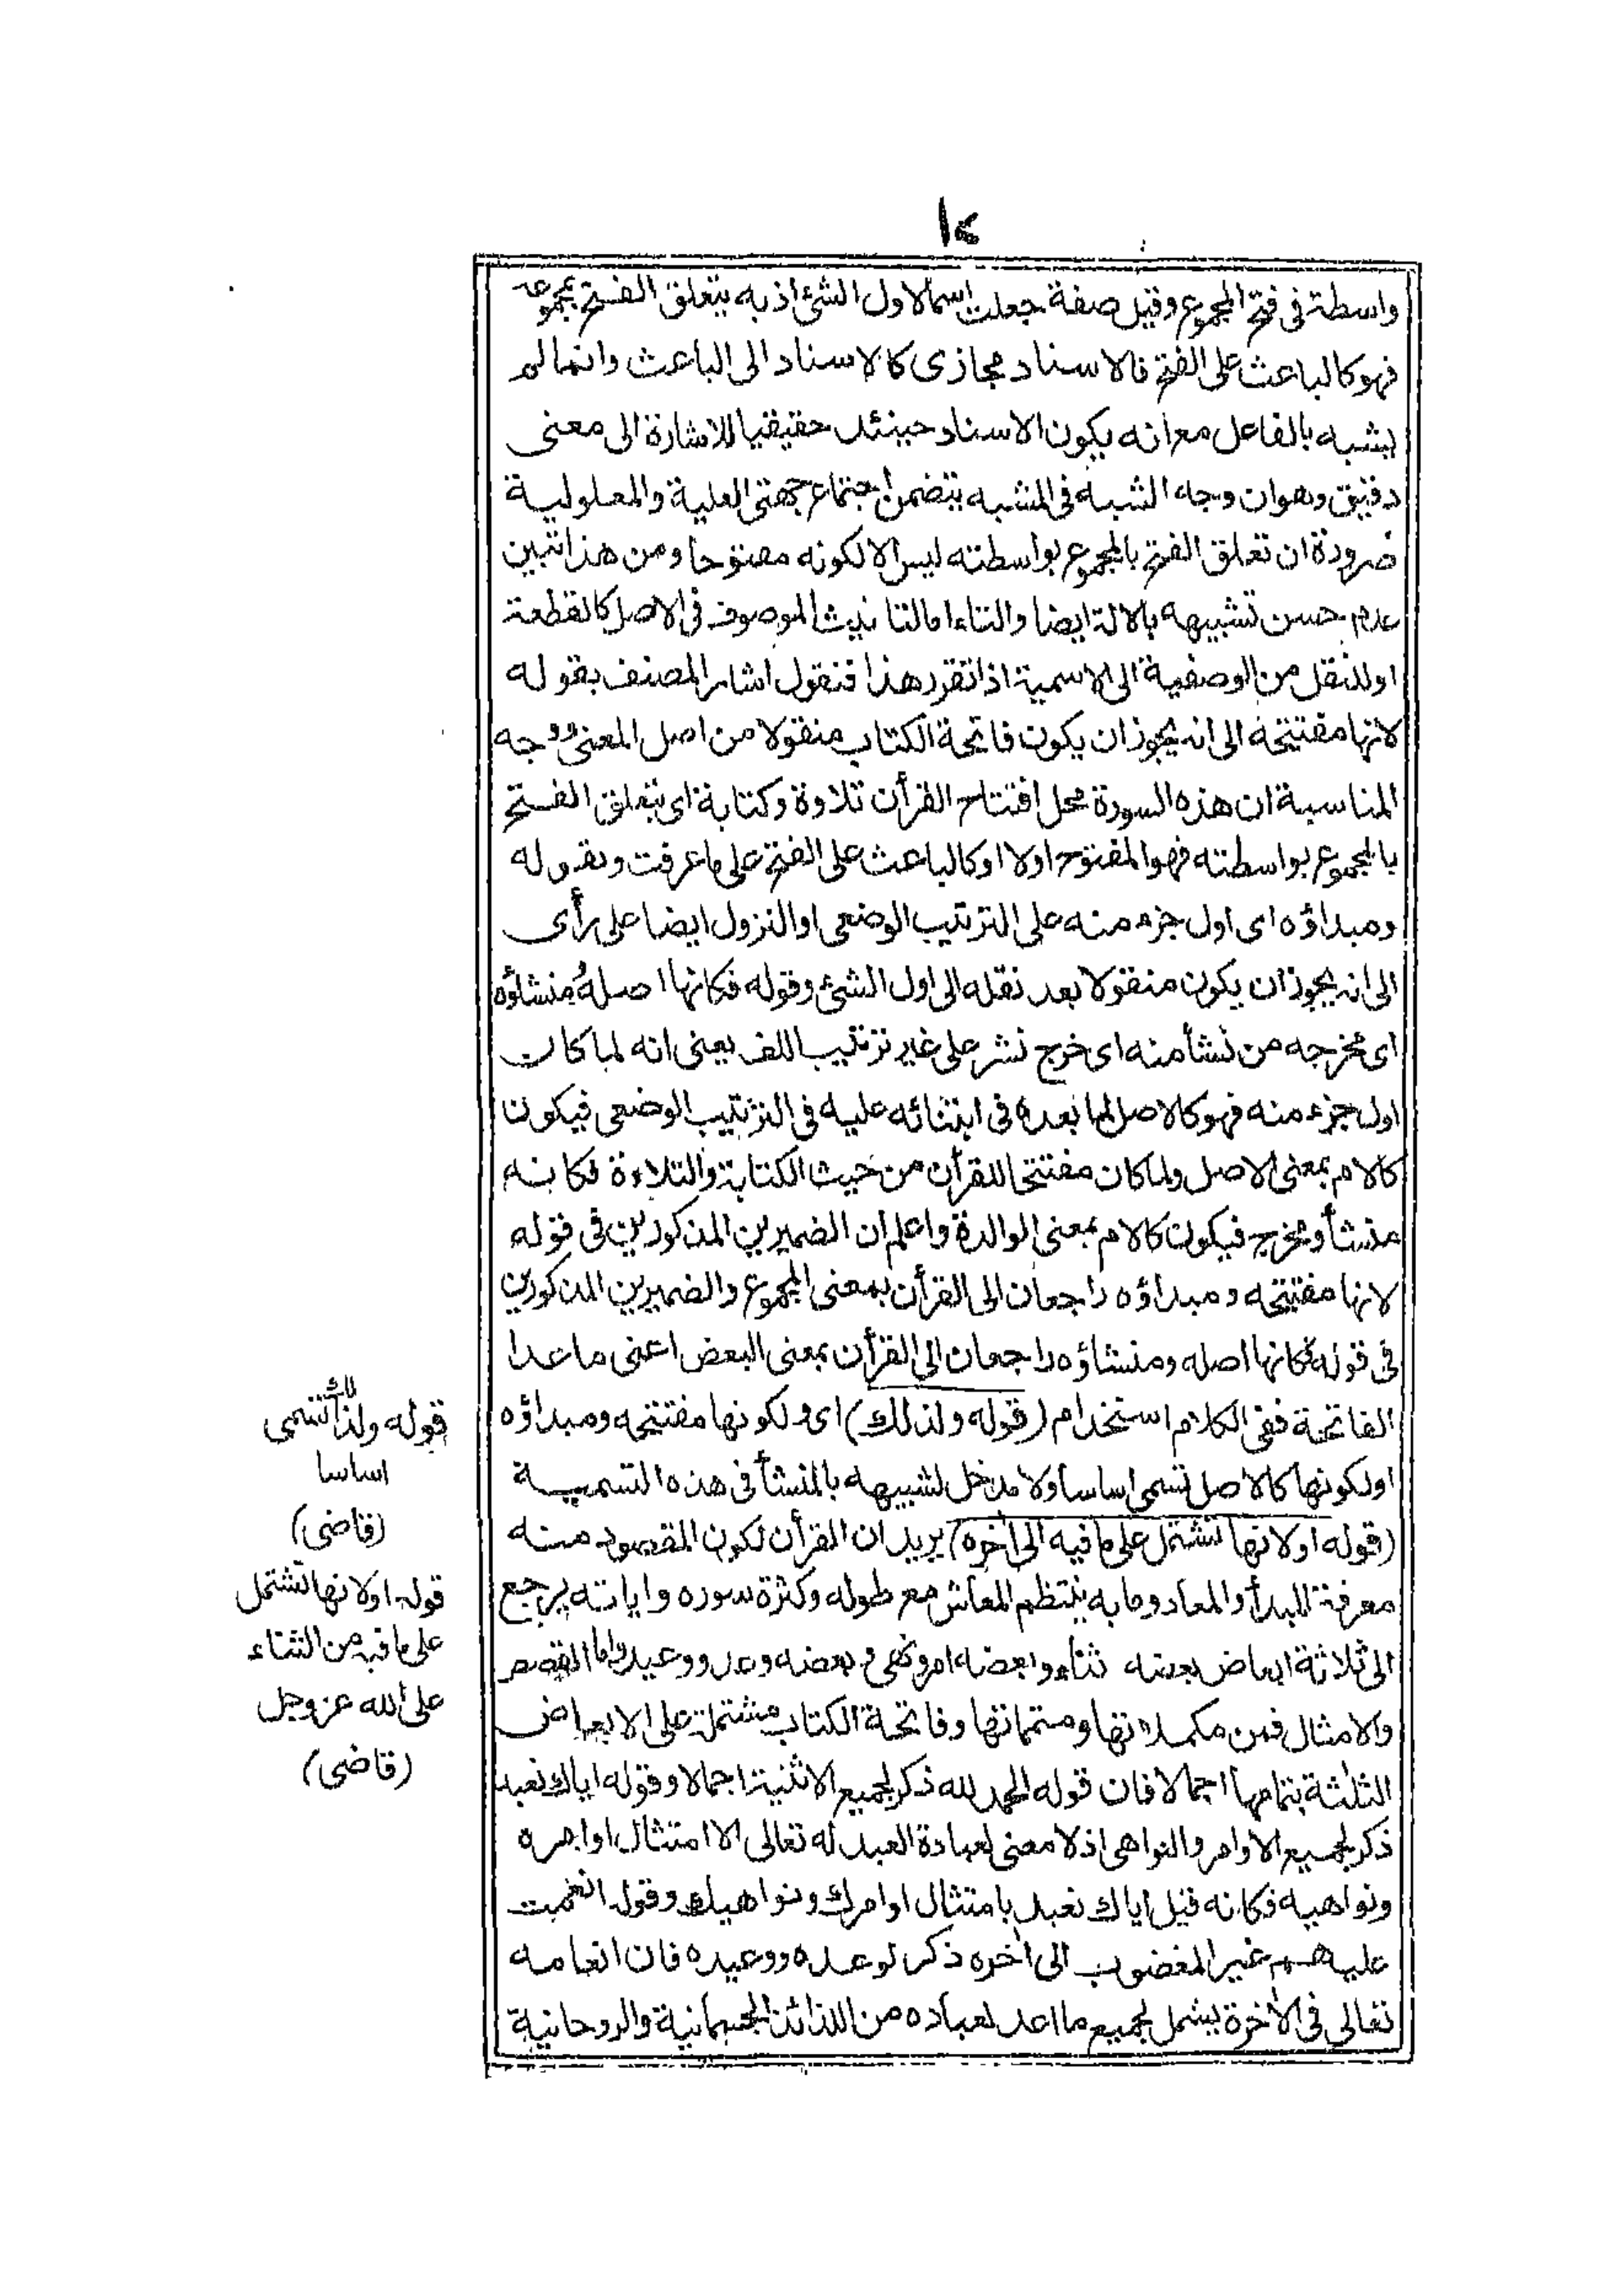 ١٤
واسطة في فتح المجموع وقيل صفة جعلت اسما لاول الشئ اذ به يتعلق الفتح بمجموعه
فهو كالباعث على الفتح فالاسناد مجازى كالاسناد الى الباعث وانما لم
يشبه بالفاعل مع انه يكون الاسناد حينئذ حقيقيا للاشارة الى معنى
دقيق وهو ان وجه الشبه في المشبه يتضمن اجتماع جهتى العلية والمعلولية
ضرورة ان تعلق الفتح بالمجموع بواسطته ليس الا لكونه مفتوحا ومن هذا تبين
عدم حسن تشبيهه بالالة ايضا والتاء اما لتانيث الموصوف في الاصل كالقطعة
او للنقل من الوصفية الى الاسمية اذا تقرر هذا فنقول اشار المصنف بقوله
لانها مفتتحه الى انه يجوز ان يكون فاتحة الكتاب منقولا من اصل المعنى ووجه
المناسبة ان هذه السورة محل افتتاح القرأن تلاوة وكتابة اى يتعلق الفتح
بالمجموع بواسطته فهو المفتوح اولا او كالباعث على الفتح على ما عرفت وبقوله
ومبداؤه اى اول جزء منه على الترتيب الوضعى او النزول ايضا على رأى
الى انه يجوز ان يكون منقولا بعد نقله الى اول الشئ وقوله فكانها اصله ومنشاؤه
اى مخرجه من نشأ منه اى خرج نشر على غير ترتيب اللف يعنى انه لما كان
اول جزء منه فهو كالاصل لما بعده في ابتنائه عليه في الترتيب الوضعى فيكون
كالام بمعنى الاصل ولما كان مفتتحا للقرأن من حيث الكتابة والتلاوة فكانه
منشأ ومخرج فيكون كالام بمعنى الوالدة واعلم ان الضميرين المذكورين في قوله
لانها مفتتحه ومبداؤه راجعان الى القرأن بمعنى المجموع والضميرين المذكورين
في قوله فكانها اصله ومنشاؤه راجعان الى القرأن بمعنى البعض اعنى ما عدا
الفاتحة ففى الكلام استخدام (قوله ولذلك) اى ولكونها مفتتحه ومبداؤه
او لكونها كالاصل تسمى اساسا ولا مدخل لشبيهه بالمنشأ في هذه التسمية
(قوله او لانها تشتمل على ما فيه الى أخره) يريد ان القرأن لكون المقصود منه
معرفة المبدأ والمعاد وما به ينتظم المعاش مع طوله وكثرة سوره واياته يرجع
الى ثلاثة ابعاض بعضه ثناء وبعضه امر ونهى وبعضه وعد ووعيد واما القصص
والامثال فمن مكملاتها ومتمماتها وفاتحة الكتاب مشتملة على الابعاض
الثلثة بتمامها اجمالا فان قوله الحمد لله ذكر لجميع الاثنية اجمالا وقوله اياك نعبد
ذكر لجميع الاوامر والنواهى اذ لا معنى لعبادة العبد له تعالى الا امتثال اوامره
ونواهيه فكانه قيل اياك نعبد بامتثال اوامرك ونواهيك وقوله انعمت
عليهم غير المغضوب الى أخره ذكر لوعده ووعيده فان انعامه
تعالى في الأخرة يشمل لجميع ما اعد لعباده من اللذائذ الجسمانية والروحانية
قوله ولذلك تسمى
اساسا
(قاضى)
قوله او لانها تشتمل
على ما فيه من الثناء
على الله عز وجل
(قاضى)